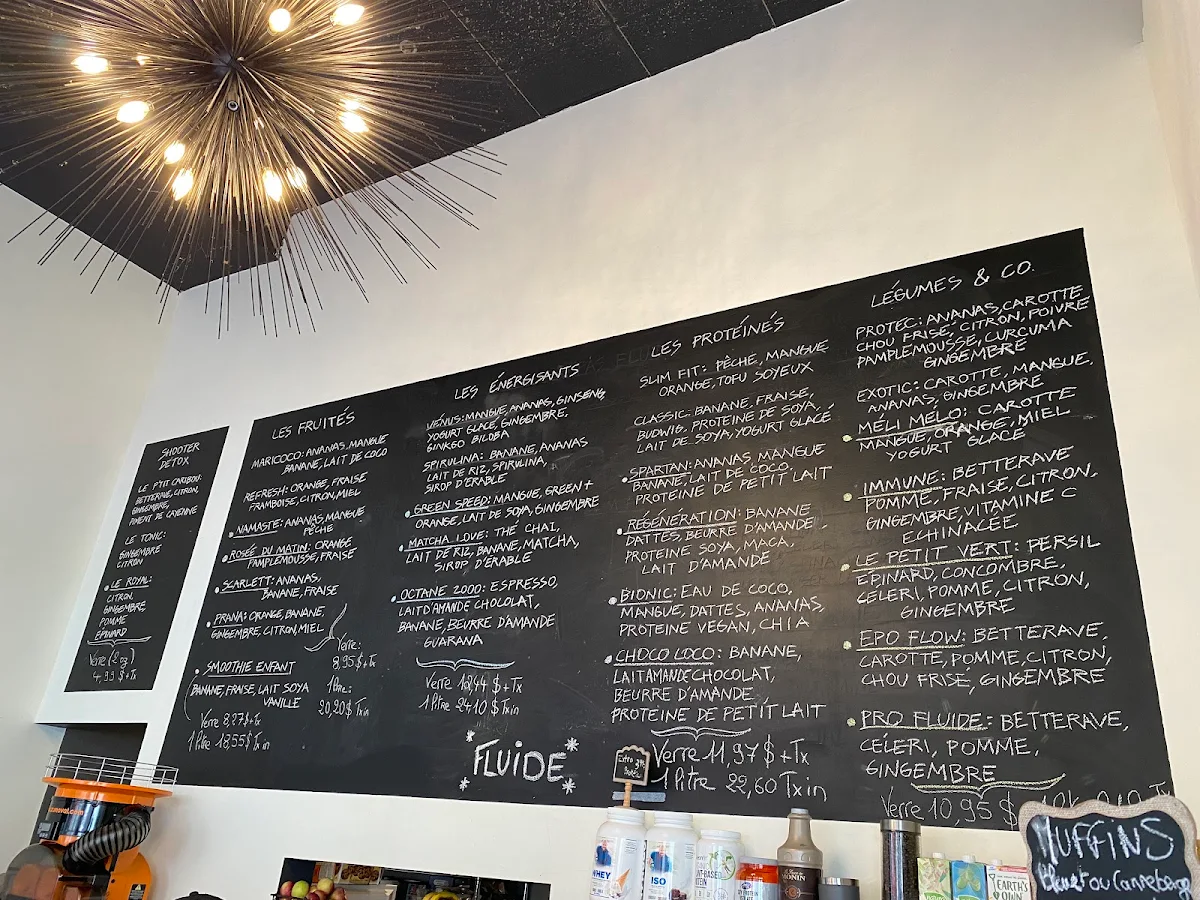 SHOOTER
DETOX
LE P'TIT CARIBOU:
BETTERAVE, CITRON,
GINGEMBRE,
PIMENT DE CAYENNE
LE TONIC:
GINGEMBRE
CITRON
LE ROYAL:
CITRON,
GINGEMBRE,
POMME
EPINARD
Verre (2 oz)
4,99 $ + Tx
LES FRUITÉS
MARICOCO: ANANAS, MANGUE
BANANE, LAIT DE COCO
REFRESH: ORANGE, FRAISE
FRAMBOISE, CITRON, MIEL
NAMASTE: ANANAS, MANGUE
PÊCHE
ROSÉE DU MATIN: ORANGE
PAMPLEMOUSSE, FRAISE
SCARLETT: ANANAS,
BANANE, FRAISE
PRANA: ORANGE, BANANE,
GINGEMBRE, CITRON, MIEL
Verre:
8,95 $ + Tx
1 litre:
20,20 $ Tx in
SMOOTHIE ENFANT
BANANE, FRAISE, LAIT SOYA
VANILLE
Verre 8,27 $ + tx
1 litre 18,55 $ Tx in
LES ÉNERGISANTS
VÉNUS: MANGUE, ANANAS, GINSENG,
YOGURT GLACÉ, GINGEMBRE,
GINKGO BILOBA
SPIRULINA: BANANE, ANANAS
LAIT DE RIZ, SPIRULINA,
SIROP D'ÉRABLE
GREEN SPEED: MANGUE, GREEN +
ORANGE, LAIT DE SOYA, GINGEMBRE
MATCHA LOVE: THÉ CHAI,
LAIT DE RIZ, BANANE, MATCHA,
SIROP D'ÉRABLE
OCTANE 2000: ESPRESSO,
LAIT D'AMANDE CHOCOLAT,
BANANE, BEURRE D'AMANDE
GUARANA
1 litre 24,10 $ Tx in
FLUIDE
LES PROTÉINÉS
SLIM FIT: PÊCHE, MANGUE
ORANGE, TOFU SOYEUX
CLASSIC: BANANE, FRAISE,
BUDWIG, PROTEINE DE SOYA,
LAIT DE SOYA, YOGURT GLACÉ
SPARTAN: ANANAS, MANGUE
BANANE, LAIT DE COCO,
PROTEINE DE PETIT LAIT
RÉGÉNÉRATION: BANANE
DATTES, BEURRE D'AMANDE,
PROTEINE SOYA, MACA,
LAIT D'AMANDE
BIONIC: EAU DE COCO,
MANGUE, DATTES, ANANAS,
PROTEINE VEGAN, CHIA
CHOCO LOCO: BANANE,
LAIT AMANDE CHOCOLAT,
BEURRE D'AMANDE
PROTEINE DE PETIT LAIT
Verre 11,97 $ + Tx
1 litre 22,60 Tx in
LÉGUMES & CO.
PROTEC: ANANAS, CAROTTE
CHOU FRISÉ, CITRON, POIVRE
PAMPLEMOUSSE, CURCUMA
GINGEMBRE
EXOTIC: CAROTTE, MANGUE,
ANANAS, GINGEMBRE
MÉLI MÉLO: CAROTTE
MANGUE, ORANGE, MIEL
YOGURT GLACÉ
IMMUNE: BETTERAVE
POMME, FRAISE, CITRON,
GINGEMBRE, VITAMINE C
ECHINACÉE
LE PETIT VERT: PERSIL
EPINARD, CONCOMBRE,
CÉLERI, POMME, CITRON,
GINGEMBRE
EPO FLOW: BETTERAVE,
CAROTTE, POMME, CITRON,
CHOU FRISÉ, GINGEMBRE
PRO FLUIDE: BETTERAVE,
CÉLERI, POMME,
GINGEMBRE
Verre 10,95 $
MUFFINS
Bleuet ou Canneberge
WHEY
ISO
MONIN
EARTH'S
OWN